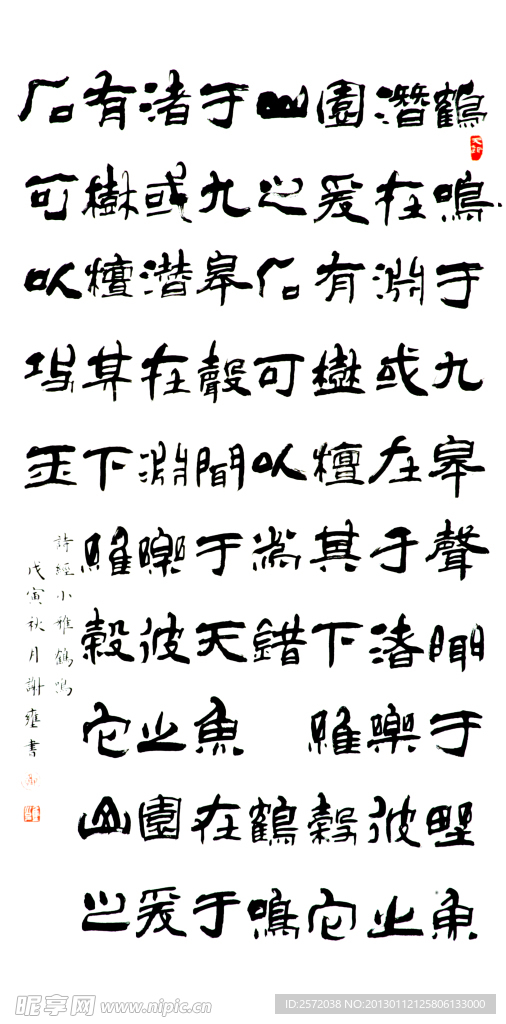 鶴鳴于九皋聲聞于野魚
潛在淵或在于渚樂彼之
園爰有樹檀其下維穀它
山之石可以為錯 鶴鳴
于九皋聲聞于天魚在于
渚或潛在淵樂彼之園爰
有樹檀其下維穀它山之
石可以攻玉
詩經小雅鶴鳴
戊寅秋月謝雍書
昵享网 www.nipic.cn
ID:2572038 NO:20130112125806133000